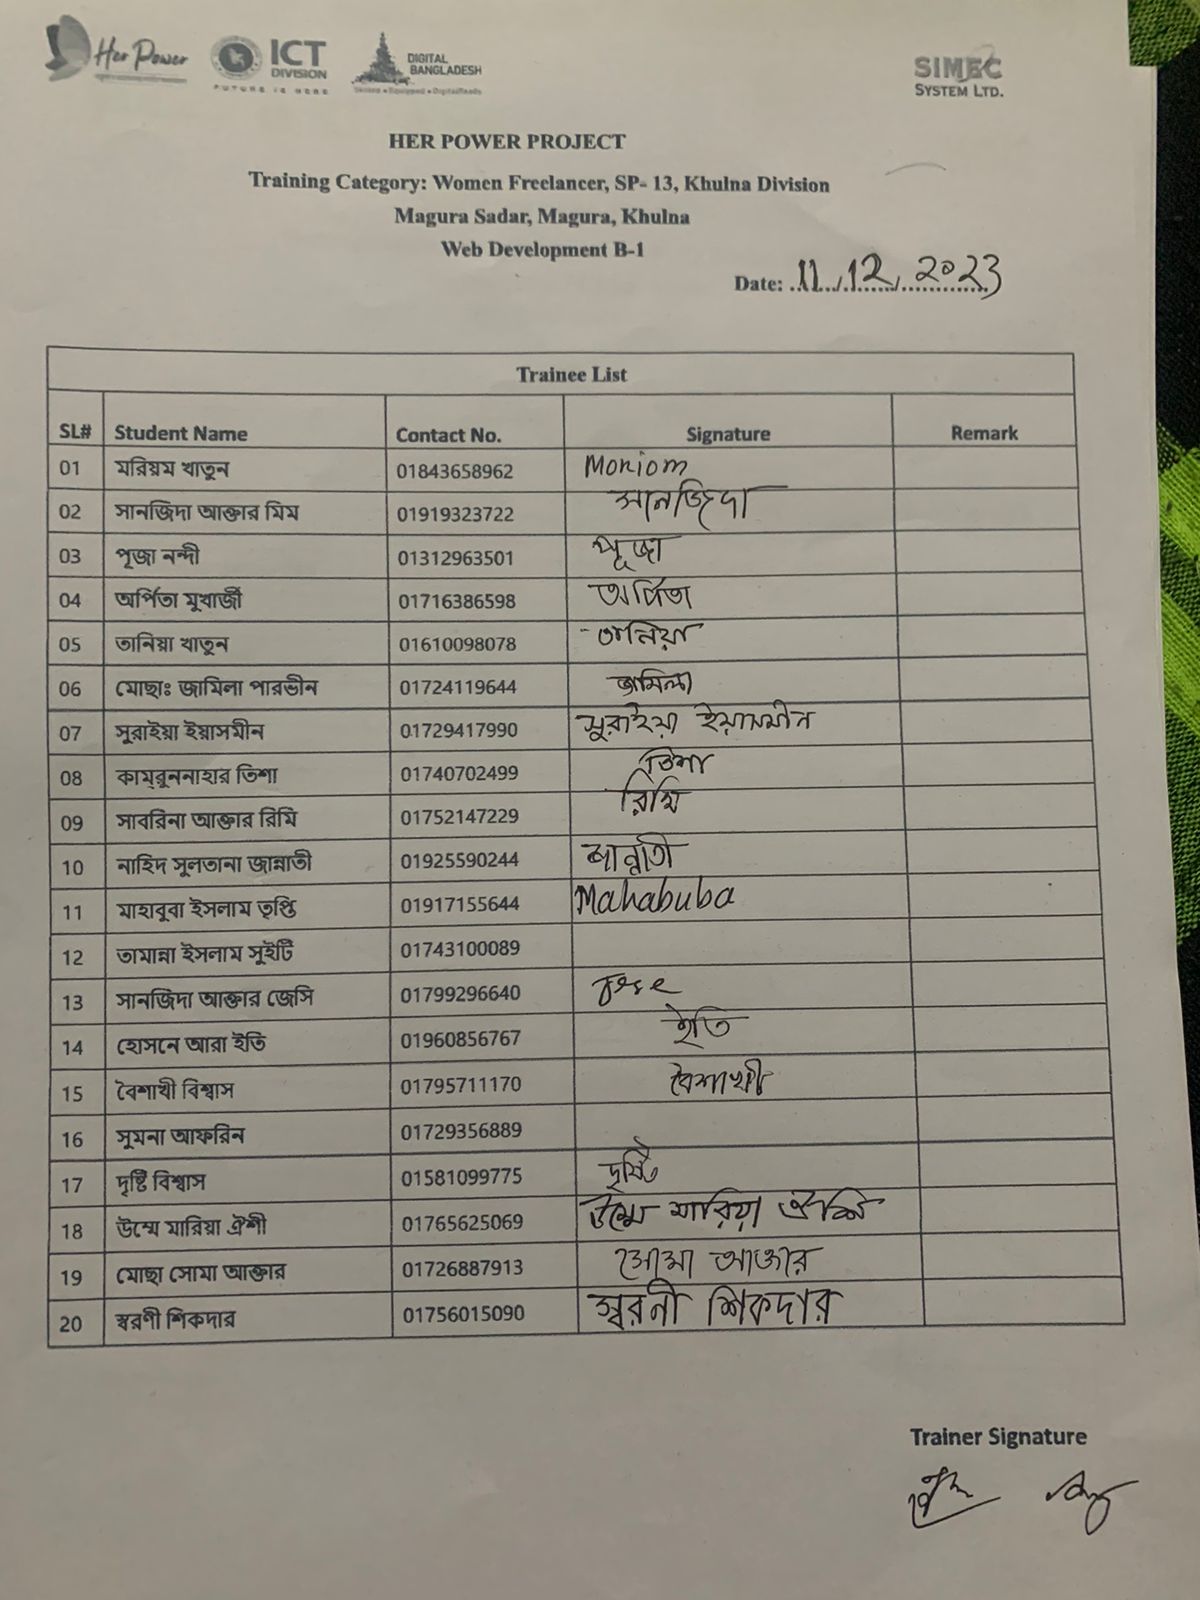 Her Power
ICT
DIVISION
FUTURE IS HERE
DIGITAL
BANGLADESH
Skilled • Equipped • DigitalReady
SIMEC
SYSTEM LTD.
HER POWER PROJECT
Training Category: Women Freelancer, SP- 13, Khulna Division
Magura Sadar, Magura, Khulna
Web Development B-1
Date: 11/12/2023
Trainee List
SL# Student Name Contact No. Signature Remark
01 মরিয়ম খাতুন 01843658962 Moriom
02 সানজিদা আক্তার মিম 01919323722 সানজিদা
03 পূজা নন্দী 01312963501 পূজা
04 অর্পিতা মুখার্জী 01716386598 অর্পিতা
05 তানিয়া খাতুন 01610098078 তানিয়া
06 মোছাঃ জামিলা পারভীন 01724119644 জামিলা
07 সুরাইয়া ইয়াসমীন 01729417990 সুরাইয়া ইয়াসমীন
08 কামরুননাহার তিশা 01740702499 তিশা
09 সাবরিনা আক্তার রিমি 01752147229 রিমি
10 নাহিদ সুলতানা জান্নাতী 01925590244 জান্নাতী
11 মাহাবুবা ইসলাম তৃপ্তি 01917155644 Mahabuba
12 তামান্না ইসলাম সুইটি 01743100089
13 সানজিদা আক্তার জেসি 01799296640
14 হোসনে আরা ইতি 01960856767 ইতি
15 বৈশাখী বিশ্বাস 01795711170 বৈশাখী
16 সুমনা আফরিন 01729356889
17 দৃষ্টি বিশ্বাস 01581099775 দৃষ্টি
18 উম্মে মারিয়া ঐশী 01765625069 উম্মে মারিয়া ঐশি
19 মোছা সোমা আক্তার 01726887913 সোমা আক্তার
20 স্বরণী শিকদার 01756015090 স্বরনী শিকদার
Trainer Signature